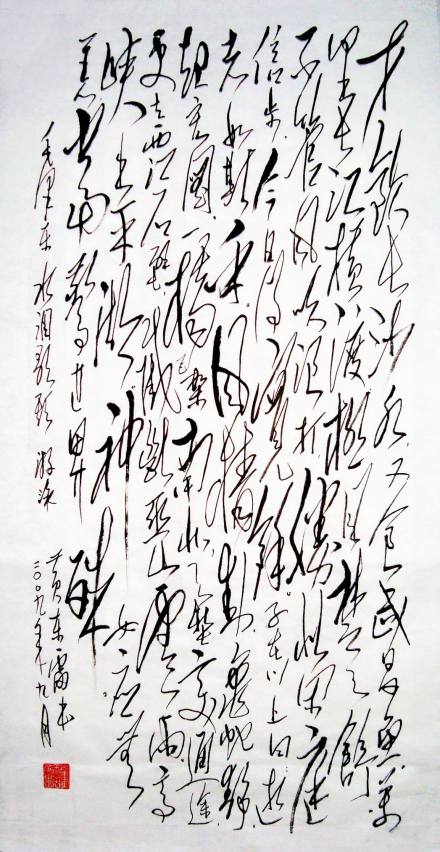 才饮长沙水又食武昌鱼万
里长江横渡极目楚天舒
不管风吹浪打胜似闲庭
信步今日得宽余子在川上曰逝
者如斯夫风樯动龟蛇静
起宏图一桥飞架南北天堑变通途
更立西江石壁截断巫山云雨高
峡出平湖神女应无
恙当惊世界殊
毛泽东水调歌头游泳
黄东雷书
二〇〇九年九月